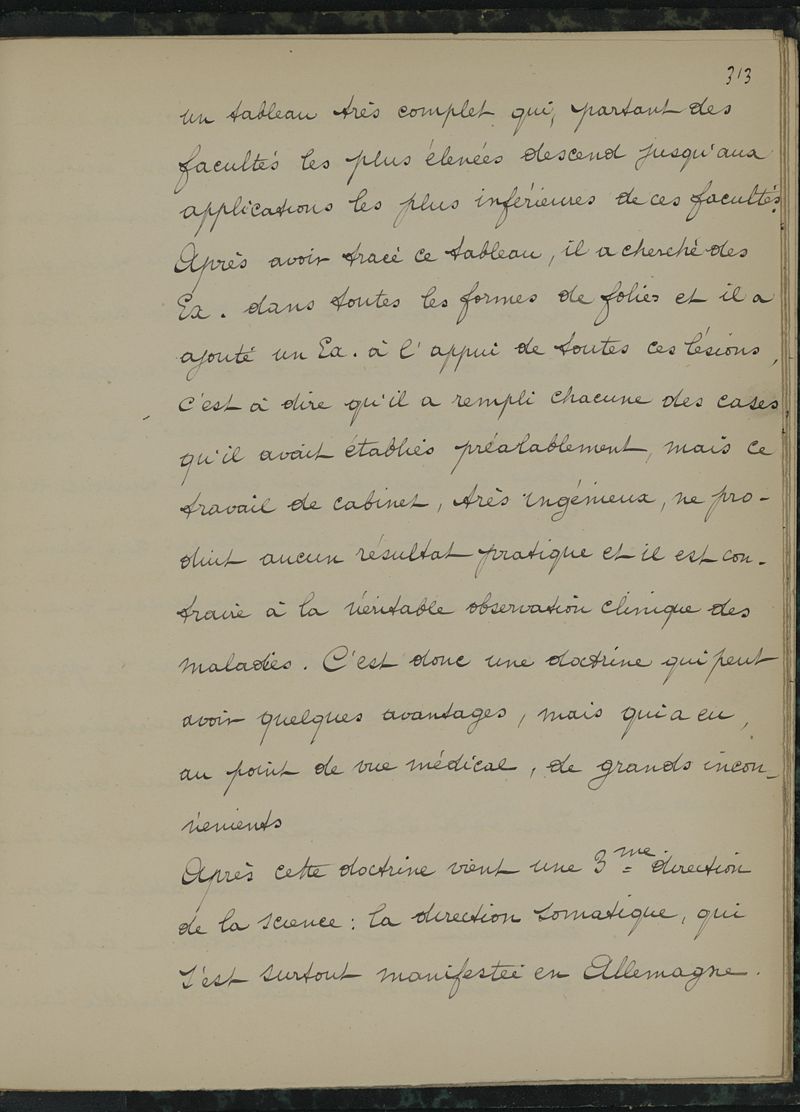 313
un tableau très complet qui, partant des
facultés les plus élevées descend jusqu'aux
applications les plus inférieures de ces facultés.
Après avoir tracé ce tableau, il a cherché des
Ex. dans toutes les formes de folies et il a
ajouté un Ex. à l'appui de toutes ces lésions,
c'est à dire qu'il a rempli chacune des cases
qu'il avait établies préalablement, mais ce
travail de cabinet, très ingénieux, ne pro-
duit aucun résultat pratique et il est con-
traire à la véritable observation clinique des
malades. C'est donc une doctrine qui peut
avoir quelques avantages, mais qui a eu,
au point de vue médical, de grands incon-
vénients
Après cette doctrine vient une 3me direction
de la science : la direction somatique, qui
s'est surtout manifestée en Allemagne.